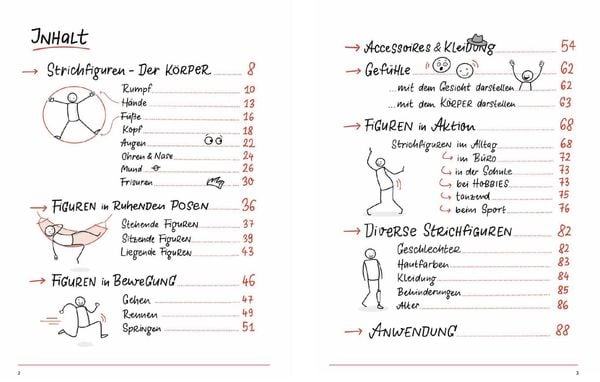 INHALT
→ Strichfiguren - Der KÖRPER 8
Rumpf 10
Hände 13
Füße 16
Kopf 18
Augen 22
Ohren & Nase 24
Mund 26
Frisuren 30
→ FIGUREN in Ruhenden POSEN 36
Stehende FIGUREN 37
Sitzende FIGUREN 39
Liegende FIGUREN 43
→ FIGUREN in BEWEGUNG 46
Gehen 47
Rennen 49
Springen 51
2
→ ACCESSOIRES & KLEIDUNG 54
→ GEFÜHLE 62
...mit dem Gesicht darstellen 62
...mit dem KÖRPER darstellen 63
→ FIGUREN in AKTION 68
Strichfiguren im Alltag 68
↳ im BÜRO 72
↳ in der Schule 73
↳ bei HOBBIES 73
↳ tanzend 75
↳ beim Sport 76
→ DIVERSE STRICHFIGUREN 82
Geschlechter 82
Hautfarben 83
Kleidung 84
Behinderungen 85
Alter 86
→ ANWENDUNG 88
3